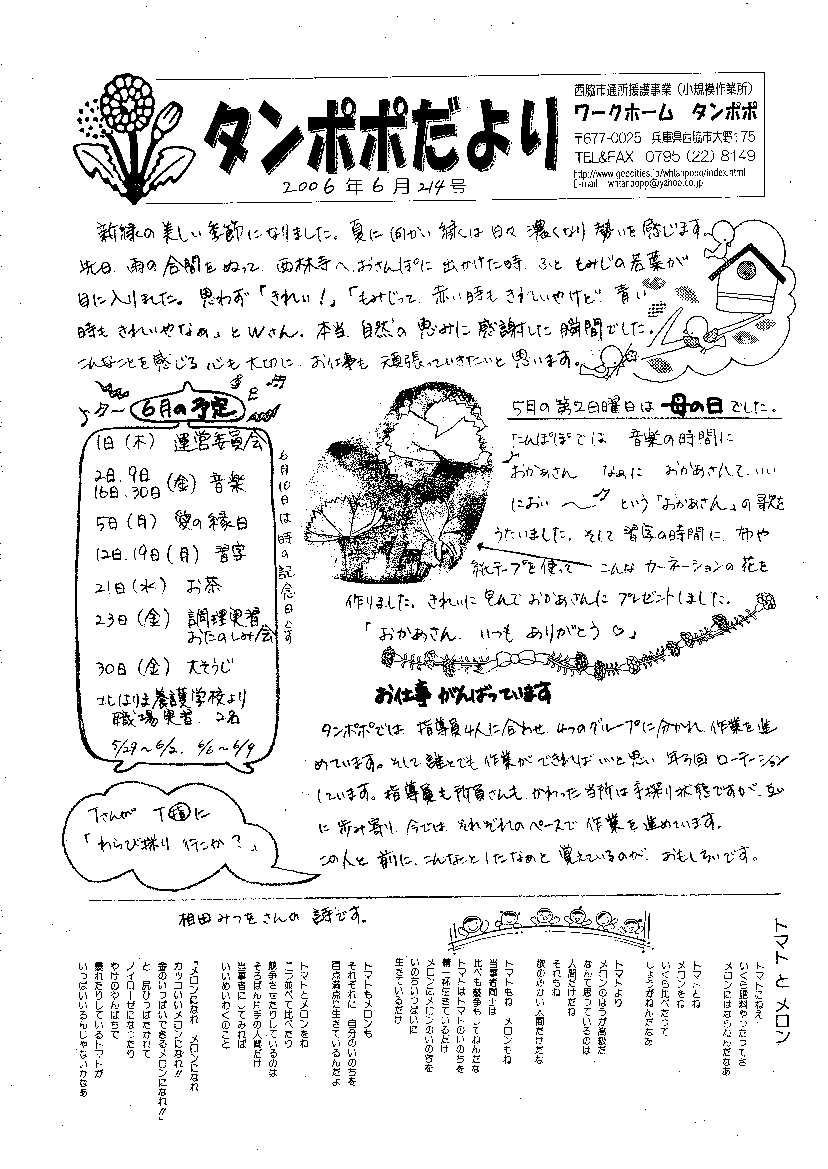 タンポポだより
2006年6月 214号
西脇市通所援護事業(小規模作業所)
ワークホーム タンポポ
〒677-0025 兵庫県西脇市大野175
TEL&FAX 0795(22)8149
http://www.geocities.jp/whtanpopo/index.html
E-mail whtanpopp@yahoo.co.jp
新緑の美しい季節になりました。夏に向かい緑は日々濃くなり勢いを感じます。
先日、雨の合間をぬって、西林寺へおさんぽに出かけた時、ふともみじの若葉が
目に入りました。思わず「きれい!」「もみじって、赤い時もきれいやけど、青い
時もきれいやなぁ」とWさん。本当、自然の恵みに感謝した瞬間でした。
こんなことを感じる心も大切に、お仕事も頑張っていきたいと思います。
6月の予定
1日(木) 運営委員会
2日.9日
16日.30日(金) 音楽
5日(月) 愛の縁日
12日.19日(月) 習字
21日(水) お茶
23日(金) 調理実習
おたのしみ会
30日(金) 大そうじ
北はりま養護学校より
職場実習 2名
5/29~6/2. 6/6~6/9
6月10日は時の記念日です
5月の第2日曜日は母の日でした。
たんぽぽでは 音楽の時間に
おかあさん なぁに おかあさんて いい
におい~ という「おかあさん」の歌を
うたいました。そして習字の時間に、和や
紙テープを使って こんなカーネーションの花を
作りました。きれいに包んでおかあさんにプレゼントしました。
「おかあさん、いつも ありがとう♡」
お仕事がんばっています
タンポポでは、指導員4人に合わせ、4つのグループに分かれ、作業を進
めています。そして誰とでも作業ができればいいと思い、年3回ローテーション
しています。指導員も所員さんも、かわった当所は手探り状態ですが、互い
に歩み寄り、今では、それぞれのペースで作業を進めています。
この人と前に、こんなことしたなぁと覚えているのが、おもしろいです。
TさんがT嬢に
「わらび採り行こか?」
相田みつをさんの詩です。
トマトとメロン
トマトにねえ
いくら肥料やったってさ
メロンにはならねんだなあ
トマトとね
メロンをね
いくら比べたって
しょうがねんだなあ
トマトより
メロンのほうが高級だ
なんて思っているのは
人間だけだね
それもね
欲のふかい人間だけだな
トマトもね メロンもね
当事者同士は
比べも競争もしてねんだな
トマトはトマトのいのちを
精一杯生きているだけ
メロンはメロンのいのちを
いのちいっぱいに
生きているだけ
トマトもメロンも
それぞれに 自分のいのちを
百点満点に生きているんだよ
トマトとメロンをね
二つ並べて比べたり
競争させたりしているのは
そろばん片手の人間だけ
当事者にしてみれば
いいめいわくのこと
「メロンになれ メロンになれ
カッコいいメロンになれ!!
金のいっぱいできるメロンになれ!!」
と 尻ひっぱたかれて
ノイローゼになったり
やけのやんぱちで
暴れたりしているトマトが
いっぱいいるんじゃないかなあ